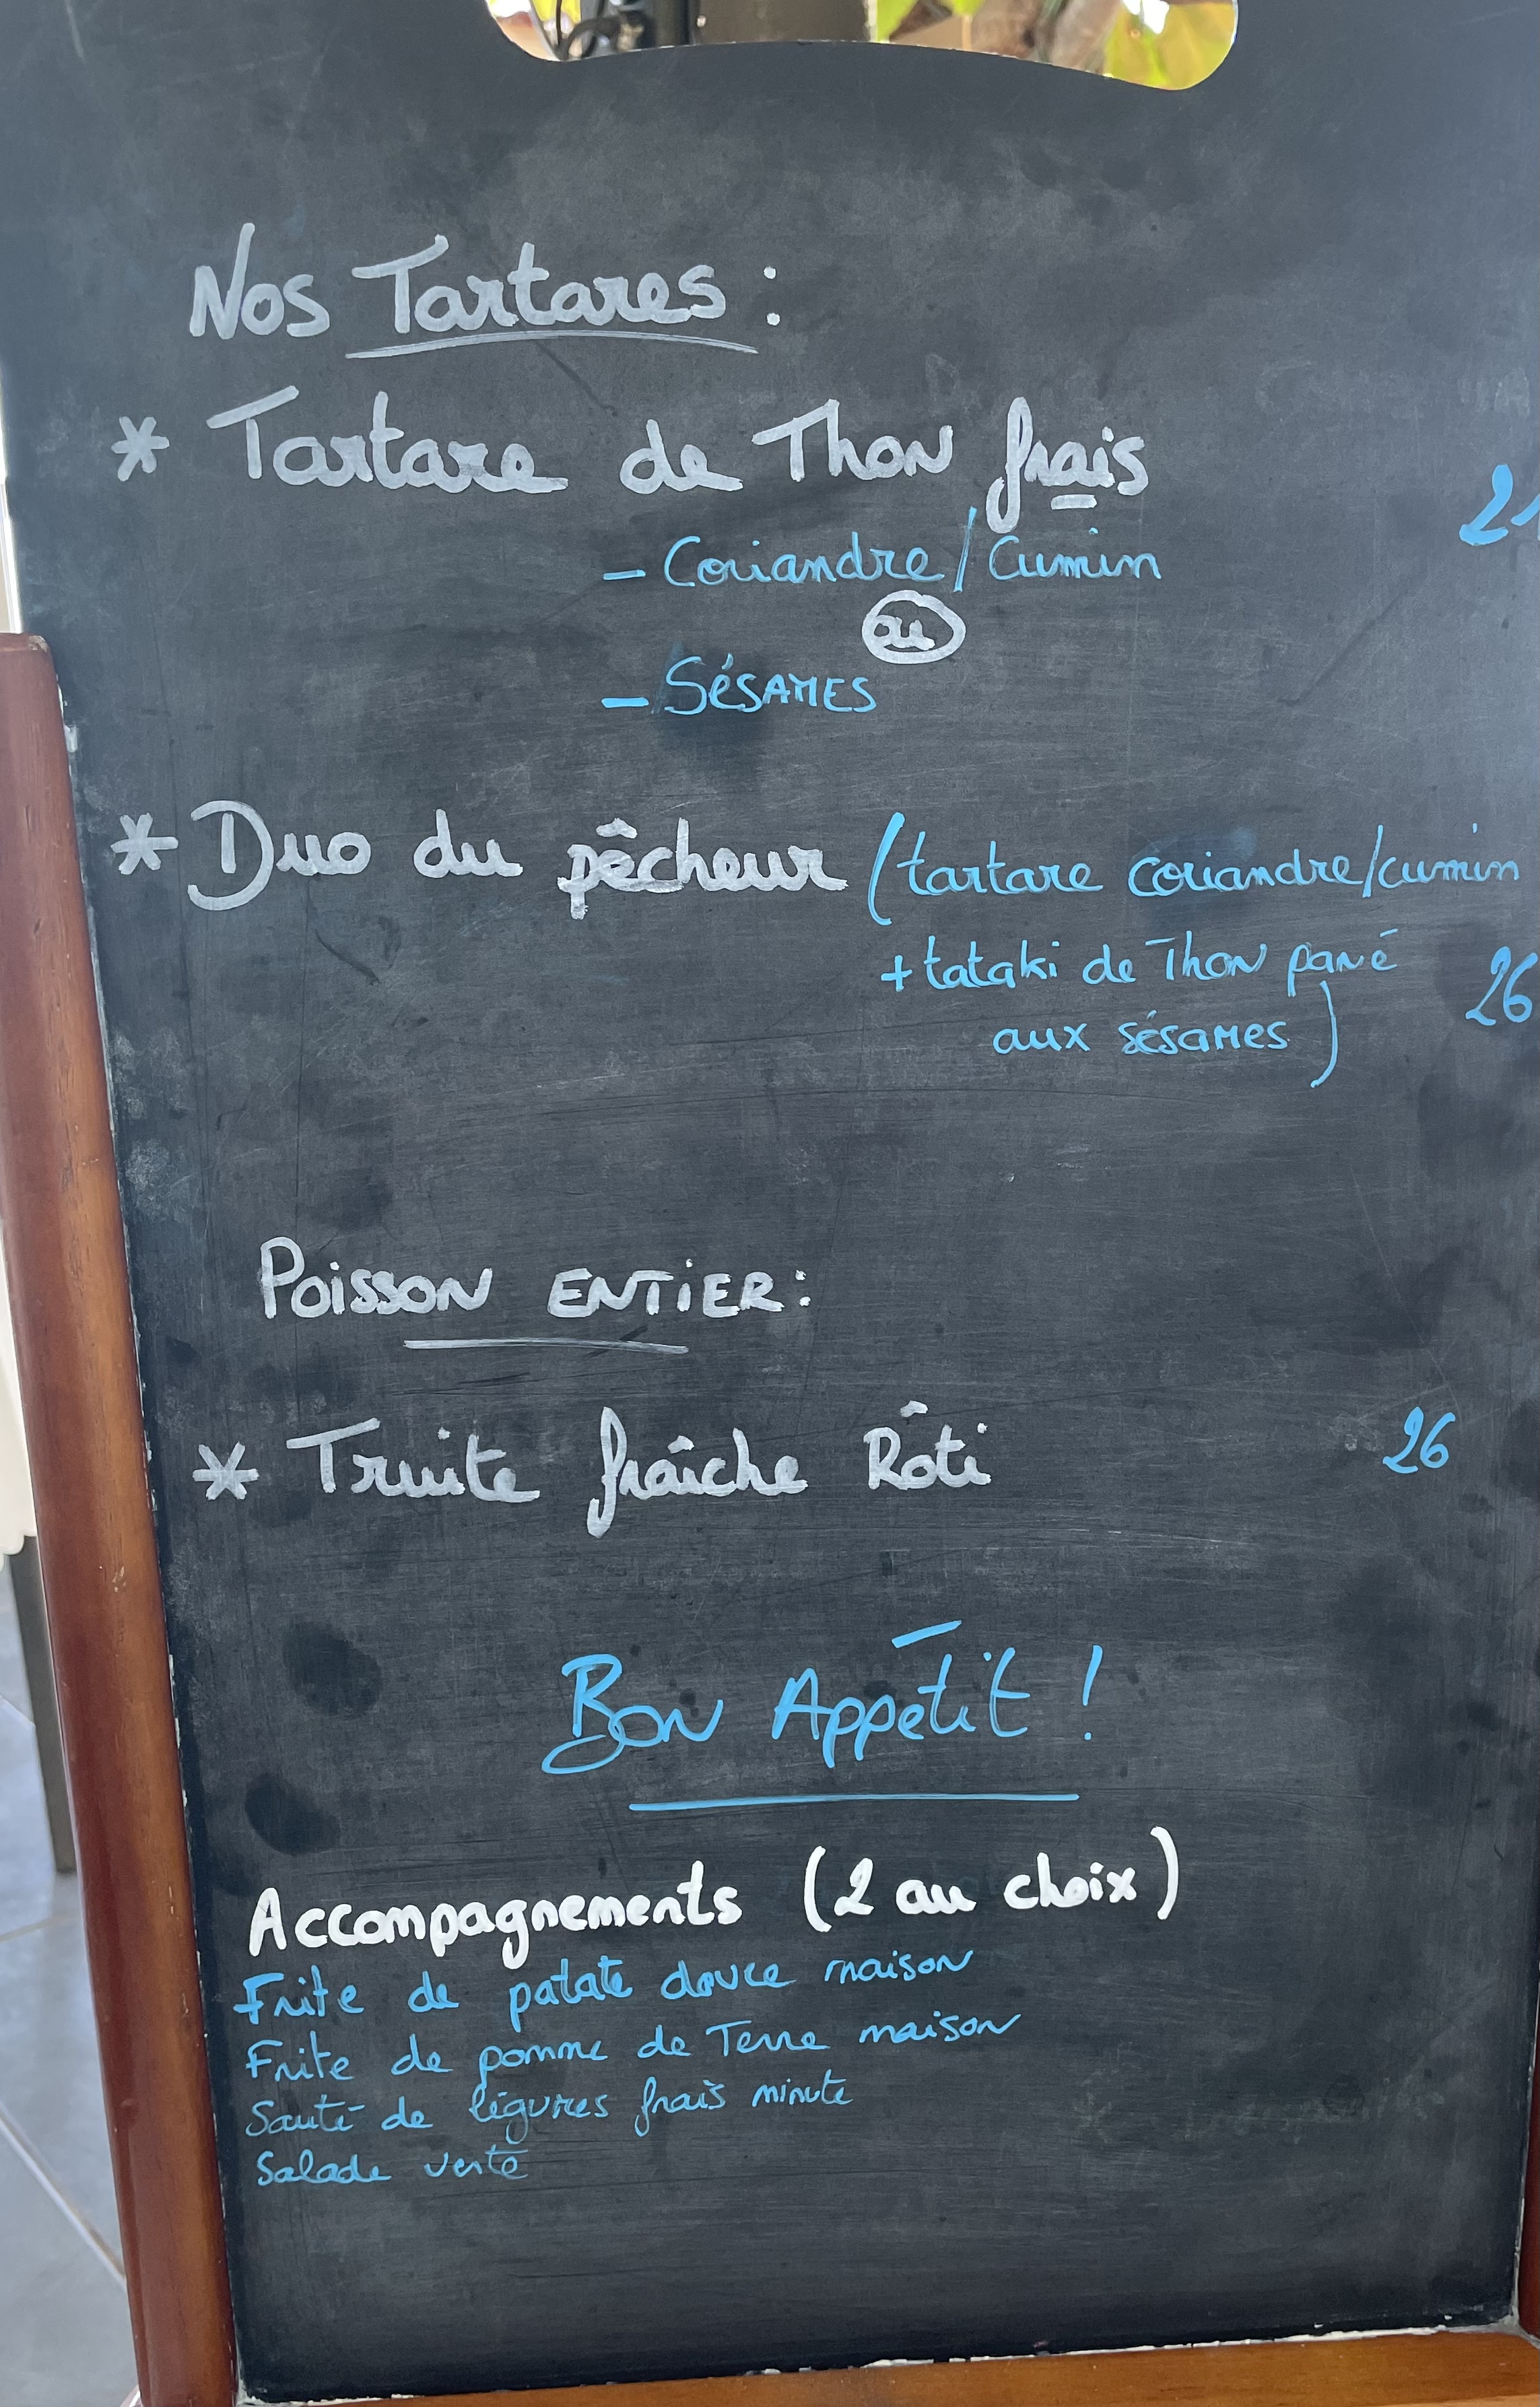 Nos Tartares :
* Tartare de Thon frais
- Coriandre / Cumin
ou
- Sésames
* Duo du pêcheur (tartare coriandre/cumin
+ tataki de Thon pané 26
aux sésames)
Poisson ENTiER :
* Truite fraîche Rôti 26
Bon Appétit !
Accompagnements (2 au choix)
Frite de patate douce maison
Frite de pomme de Terre maison
Sauté de légumes frais minute
Salade verte